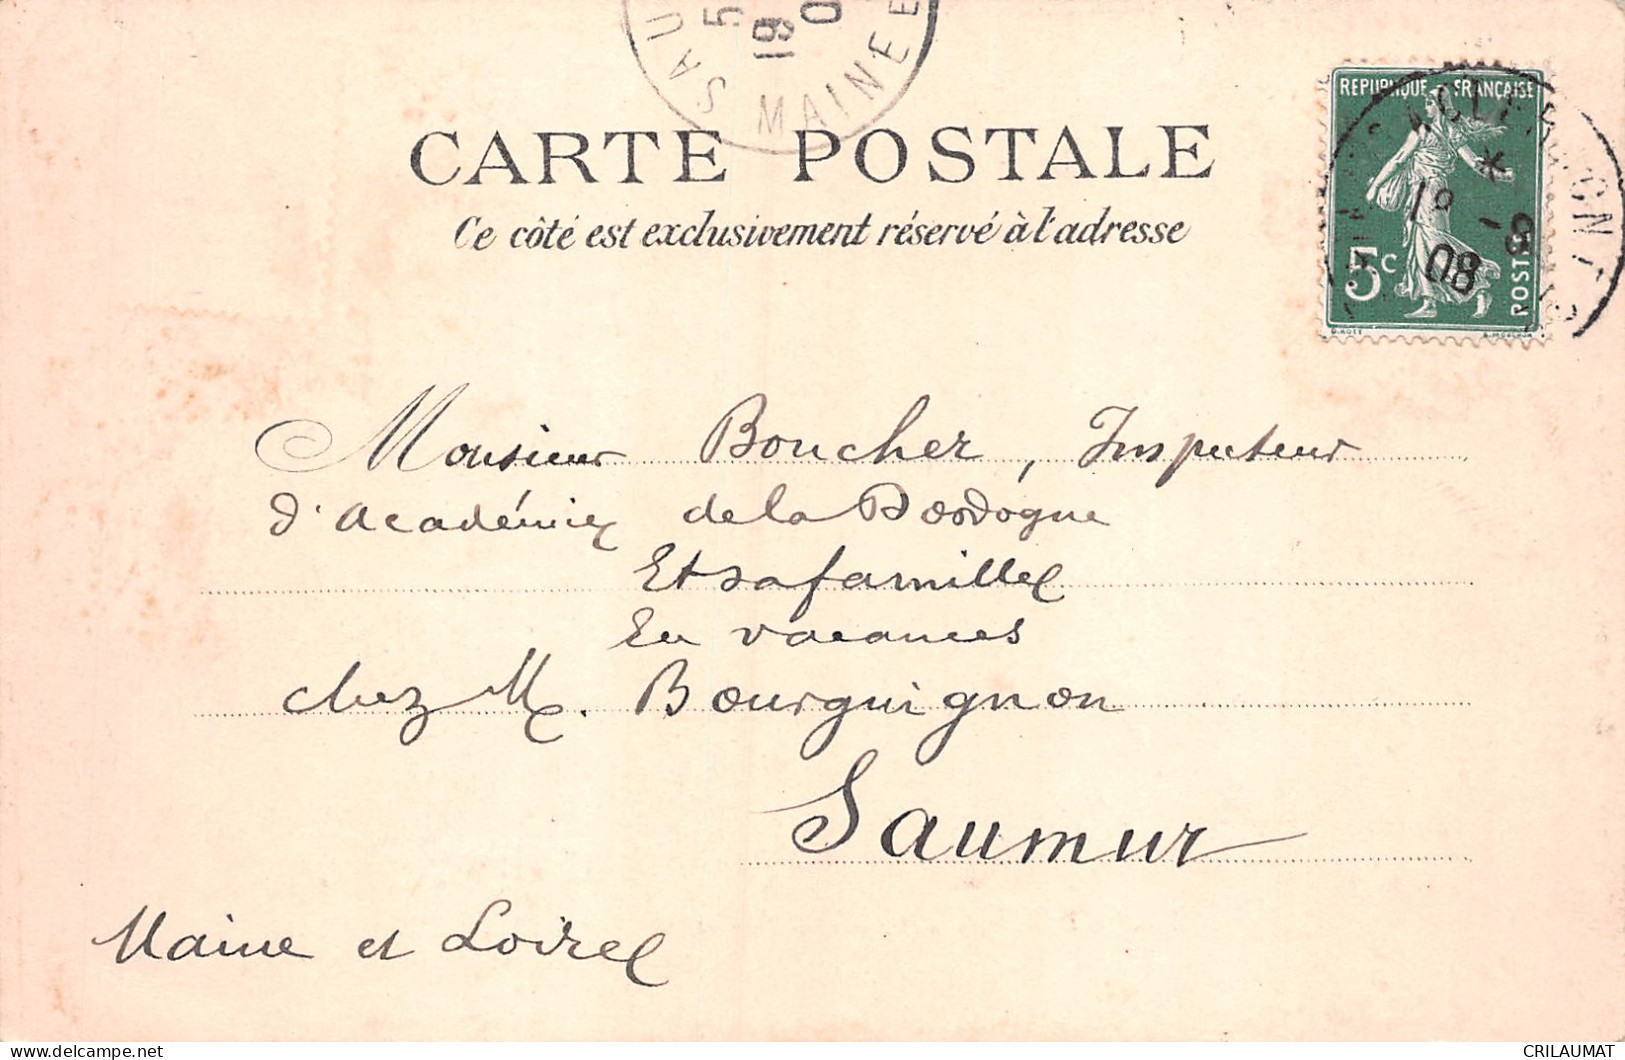 SAU
5
19 0
MAINE E
CARTE POSTALE
Ce côté est exclusivement réservé à l'adresse
REPUBLIQUE FRANÇAISE
5c
POSTES
19 -8
08
Monsieur Boucher, Inspecteur
d'Académie de la Dordogne
Et sa famille
En vacances
chez M. Bourguignon
Saumur
Maine et Loire
delcampe.net
CRILAUMAT